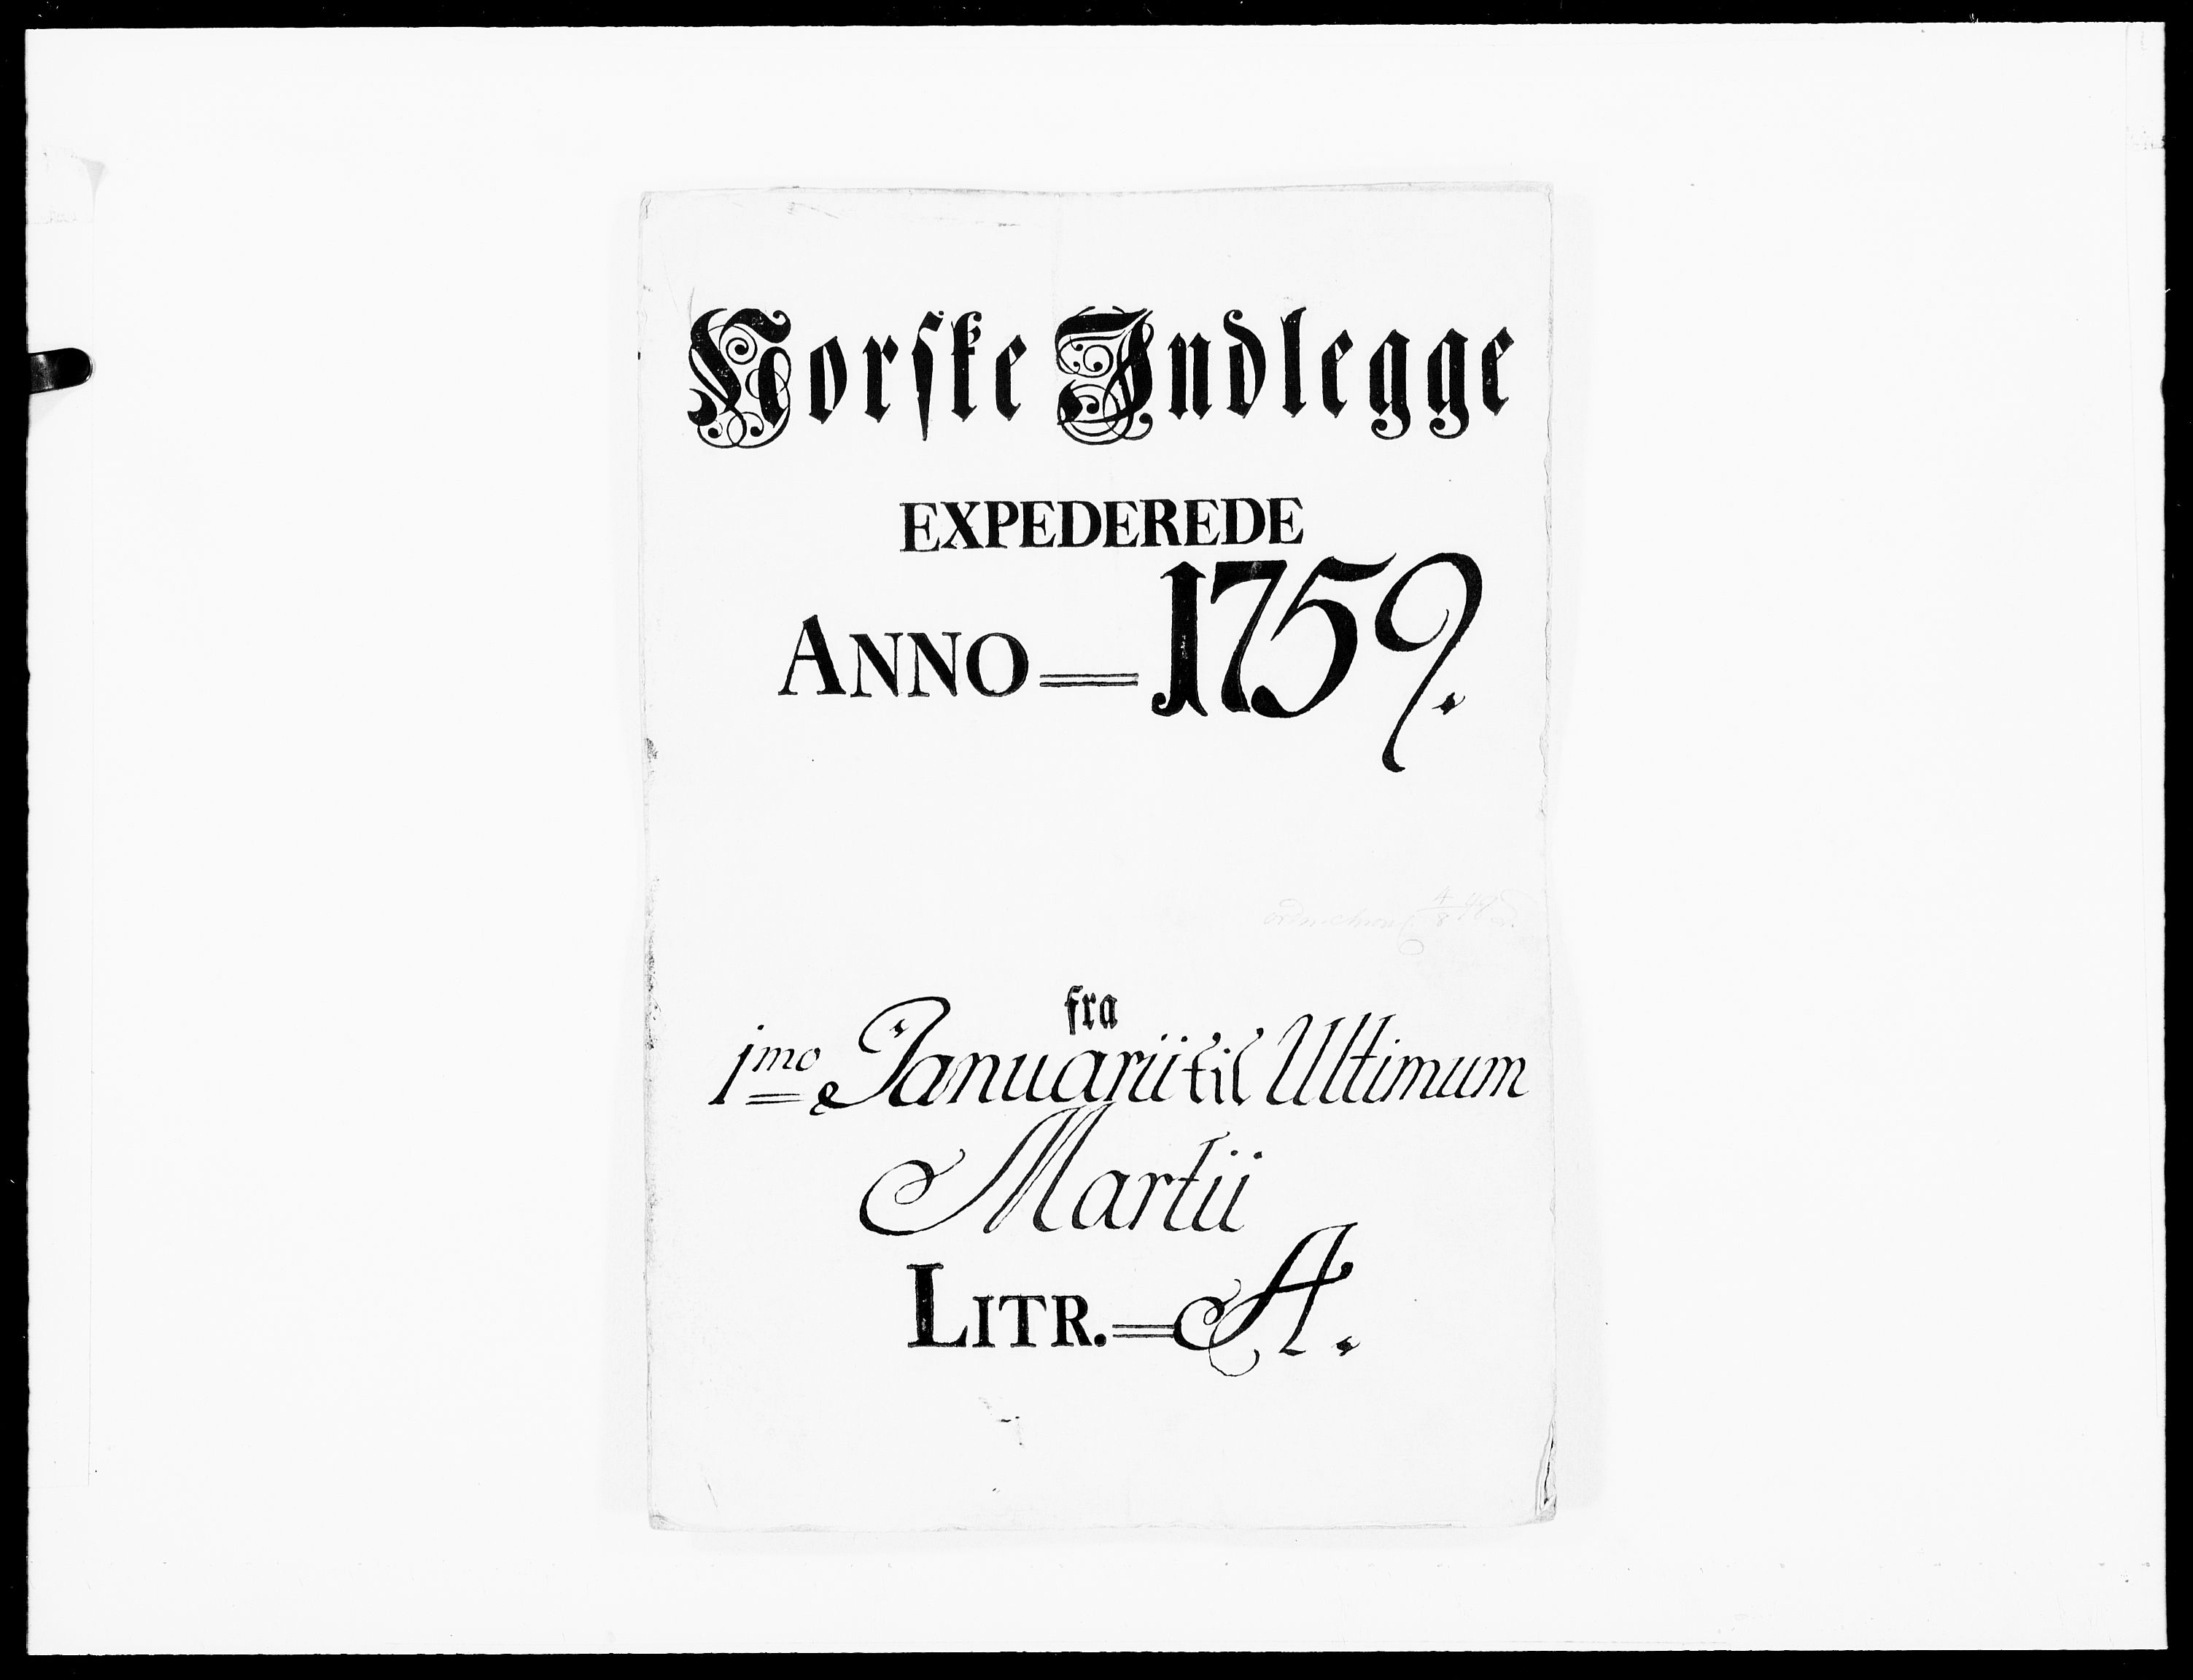 Norske Indlegge
EXPEDEREDE
ANNO = 1759.
fra
1mo Januarii til Ultimum
Martii
LITR. = A.